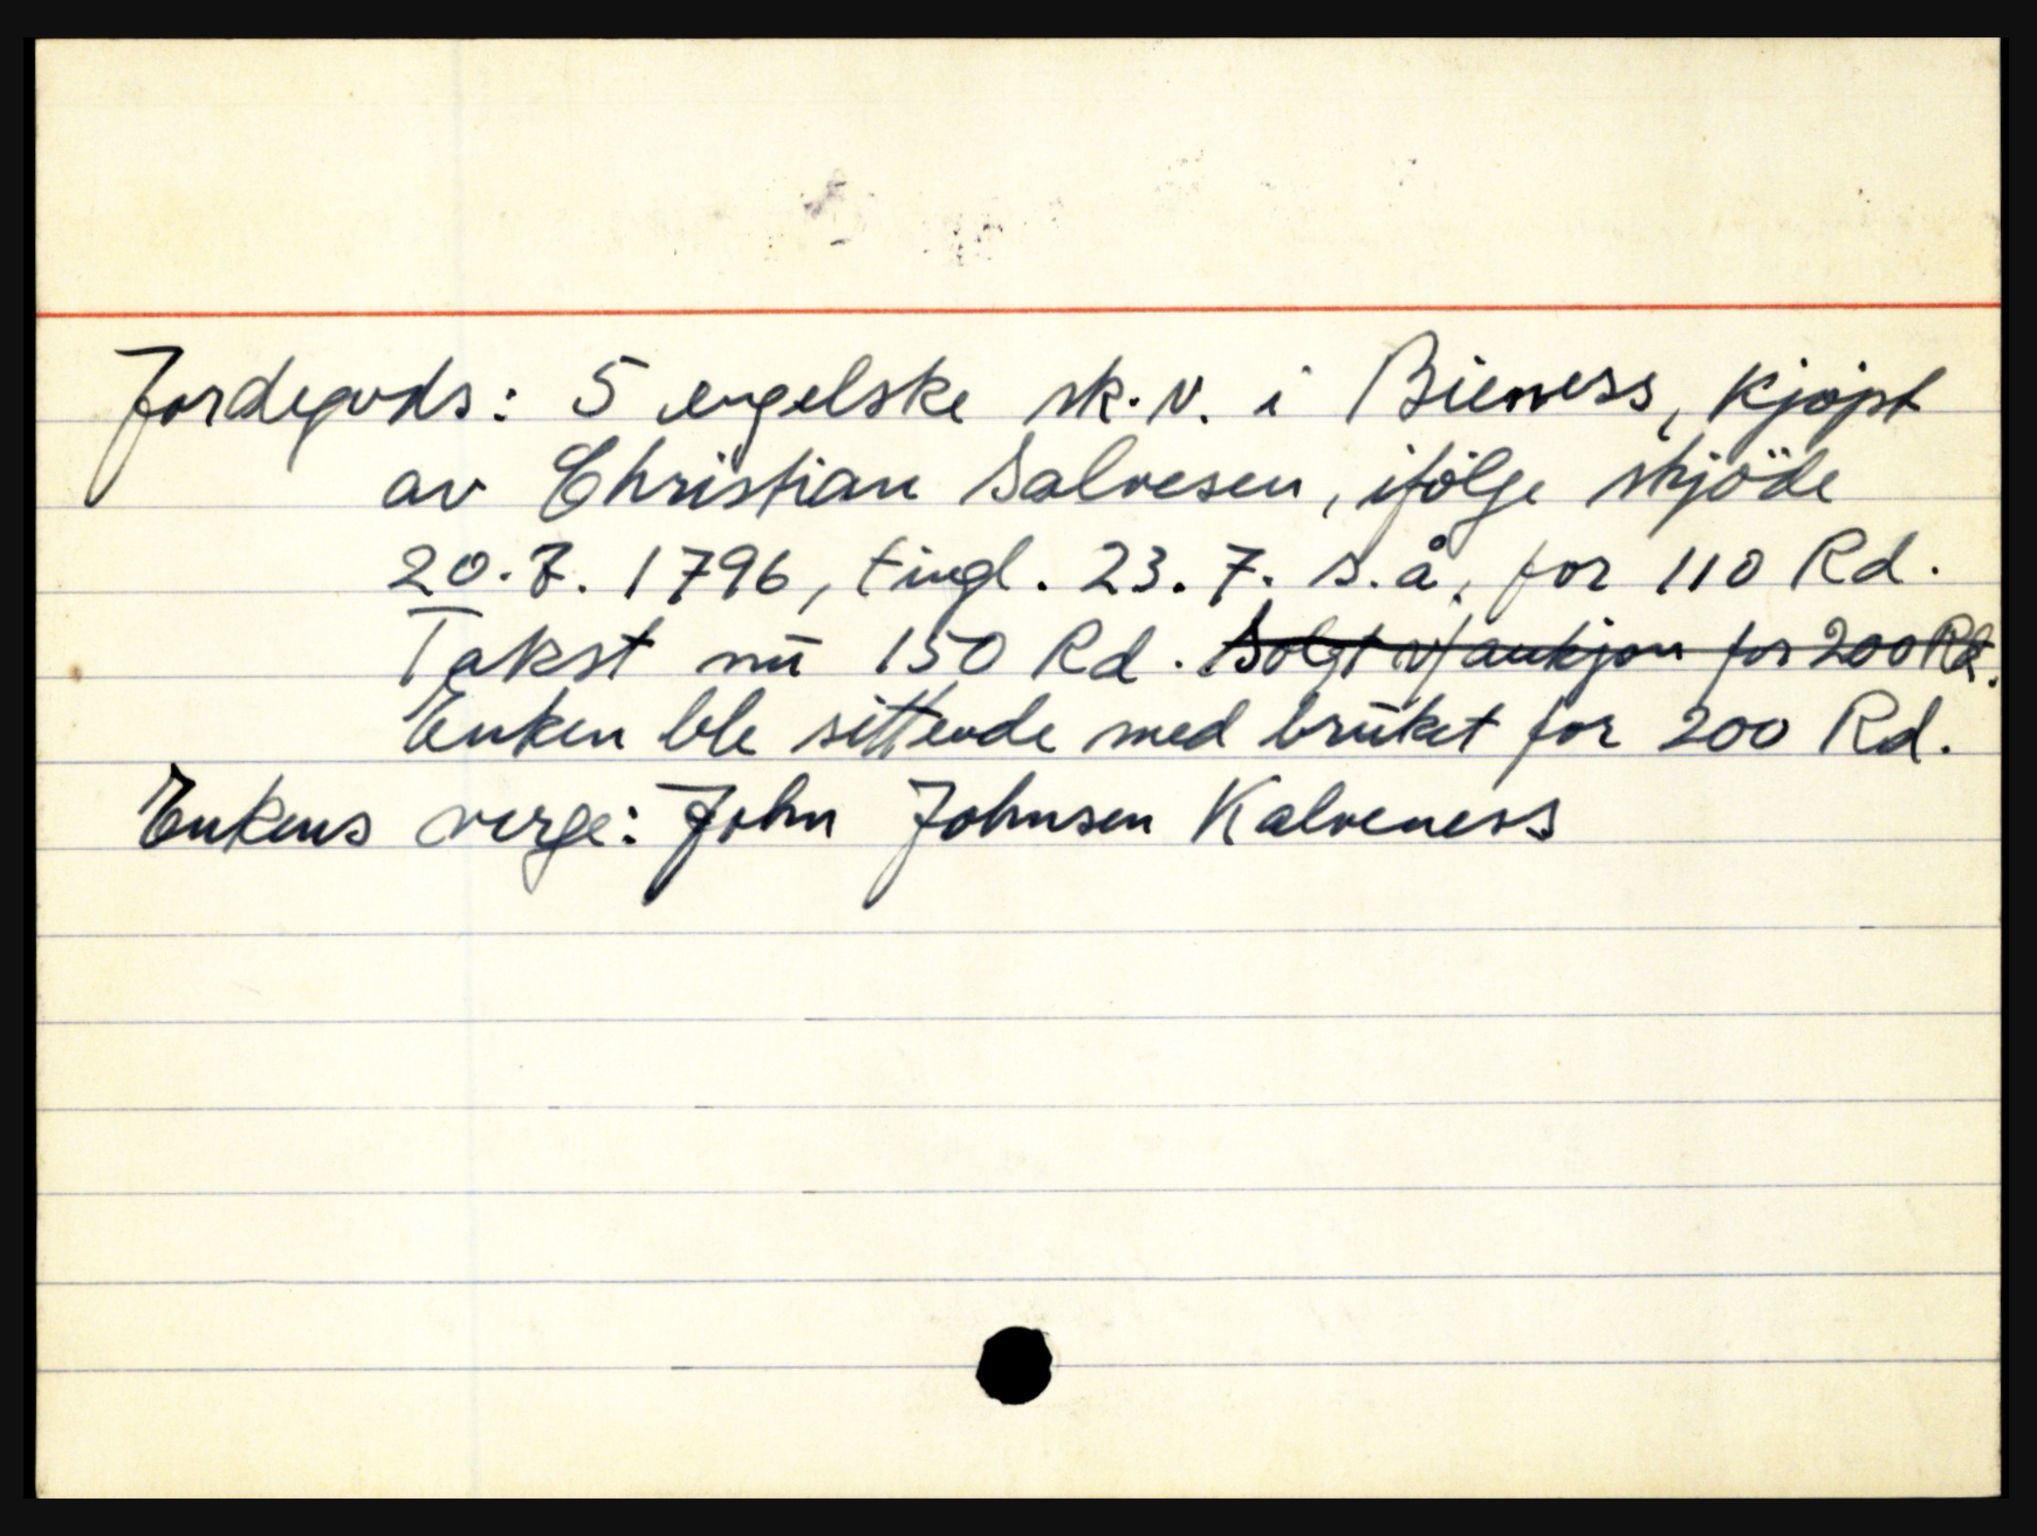 Jordegods: 5 engelske sk.v. i Bieness, kjøpt
av Christian Salvesen, ifölge skjöde
20.7. 1796, tingl. 23.7. s.å, for 110 Rd.
Takst nū 150 Rd. Solgt v/aukjon for 200 Rd.
Enken ble sittende med brūket for 200 Rd.
Enkens verge: John Johnsen Kalveness